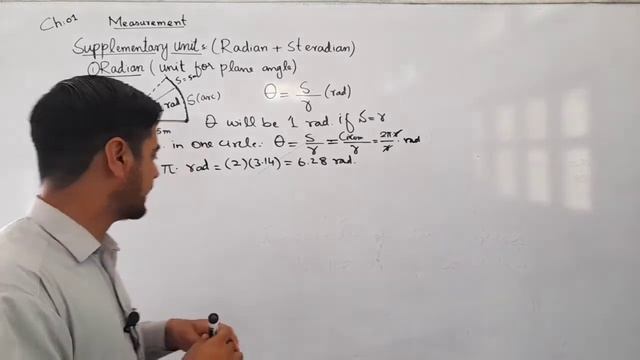 Ch:01 Measurement
Supplementary units (Radian + Steradian)
① Radian (unit for plane angle)
S = 5m
rad
S (arc)
5m
θ = S/r (rad)
θ will be 1 rad. if S = r
in one circle: θ = S/r = Circum/r = 2πr/r . rad
π. rad = (2)(3.14) = 6.28 rad.